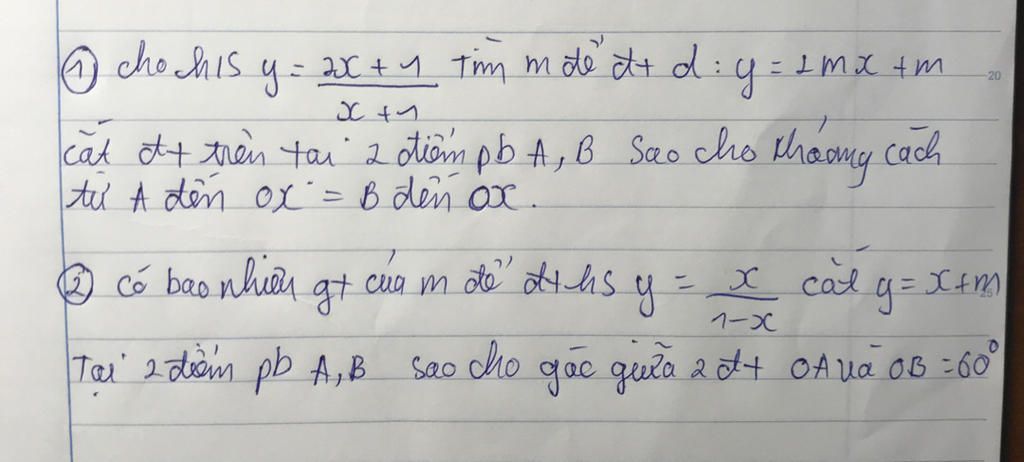 ① cho h/s y = 2x + 1 / x + 1 Tìm m để đt d : y = 2mx + m
cắt đt trên tại 2 điểm pb A, B sao cho khoảng cách
từ A đến OX = B đến OX.
② có bao nhiêu gt của m để đt hs y = x / 1-x cắt y = x + m
Tại 2 điểm pb A, B sao cho góc giữa 2 đt OA và OB = 60°
20
25